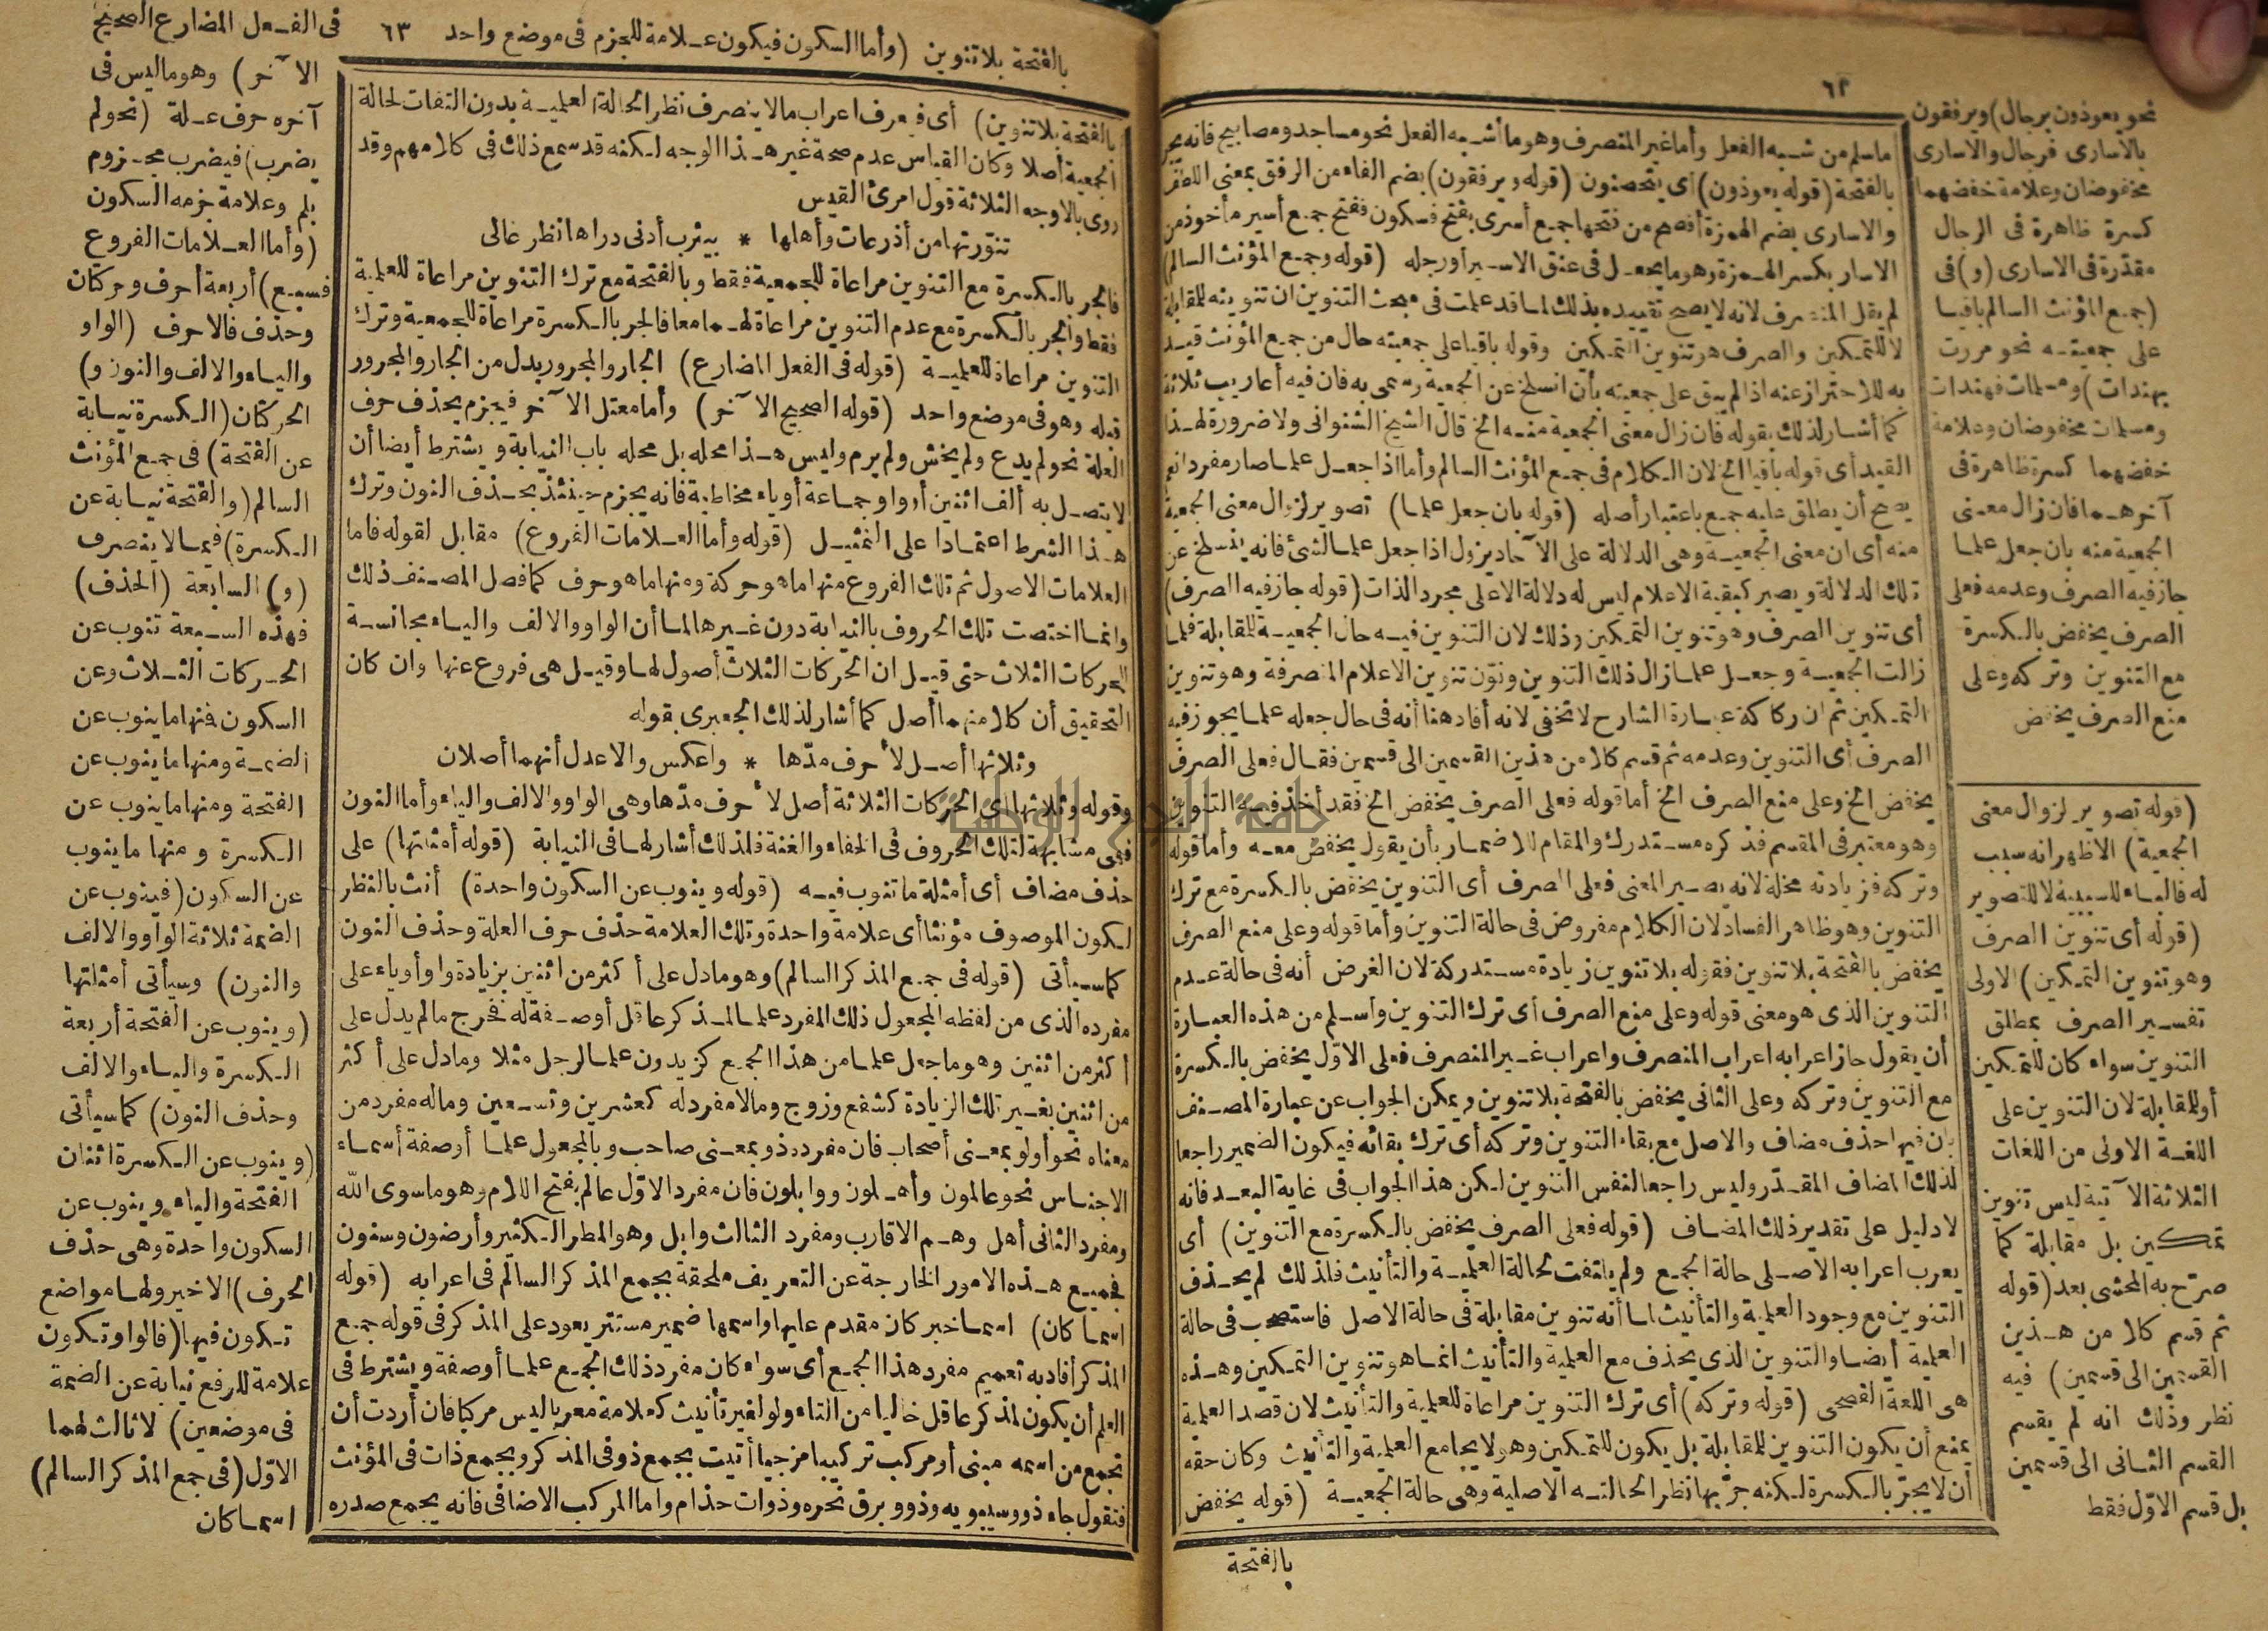 ٦٢
نحو يعوذون برجال) ويرفقون
بالاسارى فرجال والاسارى
مخفوضان وعلامة خفضهما
كسرة ظاهرة فى الرجال
مقدرة فى الاسارى (و) فى
(جمع المؤنث السالم باقيا
على جمعيته نحو مررت
بهندات) ومسلمات فهندات
ومسلمات مخفوضان وعلامة
خفضهما كسرة ظاهرة فى
آخرهما فان زال معنى
الجمعية منه بان جعل علما
جاز فيه الصرف وعدمه فعلى
الصرف يخفض بالكسرة
مع التنوين وتركه وعلى
منع الصرف يخفض
(قوله تصوير لزوال معنى
الجمعية) الاظهر انه سبب
له فالباء للسببية لا للتصوير
(قوله أى تنوين الصرف
وهو تنوين التمكين) الاولى
تفسير الصرف بمطلق
التنوين سواء كان للتمكين
أو للمقابلة لان التنوين على
اللغة الاولى من اللغات
الثلاثة الآتية ليس تنوين
تمكين بل مقابلة كما
صرّح به المحشى بعد (قوله
ثم قسم كلا من هذين
القسمين الى قسمين) فيه
نظر وذلك انه لم يقسم
القسم الثانى الى قسمين
بل قسم الاوّل فقط
ما سلم من شبه الفعل وأما غير المنصرف وهو ما أشبه الفعل نحو مساجد ومصابيح فانه يجر
بالفتحة (قوله يعوذون) أى يتحصنون (قوله ويرفقون) بضم الفاء من الرفق بمعنى اللطف
والاسارى بضم الهمزة أفصح من فتحها جمع أسرى بفتح فسكون ففتح جمع أسير مأخوذ من
الاسار بكسر الهمزة وهو ما يجعل فى عنق الاسير أو رجله (قوله وجمع المؤنث السالم)
لم يقل المنصرف لانه لا يصح تقييده بذلك لما قد علمت فى مبحث التنوين ان تنوينه للمقابلة
لا للتمكين والصرف هو تنوين التمكين وقوله باقيا على جمعيته حال من جمع المؤنث قيد
به للاحتراز عنه اذا لم يبق على جمعيته بأن انسلخ عن الجمعية وسمى به فان فيه أعاريب ثلاثة
كما أشار لذلك بقوله فان زال معنى الجمعية منه الخ قال الشيخ الشنوانى ولا ضرورة لهذا
القيد أى قوله باقيا الخ لان الكلام فى جمع المؤنث السالم وأما اذا جعل علما صار مفردا نعم
يصح أن يطلق عليه جمع باعتبار أصله (قوله بان جعل علما) تصوير لزوال معنى الجمعية
منه أى ان معنى الجمعية وهى الدلالة على الآحاد يزول اذا جعل علما لشئ فانه ينسلخ عن
تلك الدلالة ويصير كبقية الاعلام ليس له دلالة الا على مجرد الذات (قوله جاز فيه الصرف)
أى تنوين الصرف وهو تنوين التمكين وذلك لان التنوين فيه حال الجمعية للمقابلة فلما
زالت الجمعية وجعل علما زال ذلك التنوين ونوّن تنوين الاعلام المنصرفة وهو تنوين
التمكين ثم ان ركاكة عبارة الشارح لا تخفى لانه أفاد هنا أنه فى حال جعله علما يجوز فيه
الصرف أى التنوين وعدمه ثم قسم كلا من هذين القسمين الى قسمين فقال فعلى الصرف
يخفض الخ وعلى منع الصرف الخ أما قوله فعلى الصرف يخفض الخ فقد أخذ فيه التنوين
وهو معتبر فى المقسم فذكره مستدرك والمقام للاضمار بأن يقول يخفض معه وأما قوله
وتركه فزيادته مخلة لانه يصير المعنى فعلى الصرف أى التنوين يخفض بالكسرة مع ترك
التنوين وهو ظاهر الفساد لان الكلام مفروض فى حالة التنوين وأما قوله وعلى منع الصرف
يخفض بالفتحة بلا تنوين فقوله بلا تنوين زيادة مستدركة لان الغرض أنه فى حالة عدم
التنوين الذى هو معنى قوله وعلى منع الصرف أى ترك التنوين وأسلم من هذه العبارة
أن يقول جاز اعرابه اعراب المنصرف واعراب غير المنصرف فعلى الاوّل يخفض بالكسرة
مع التنوين وتركه وعلى الثانى يخفض بالفتحة بلا تنوين ويمكن الجواب عن عبارة المصنف
بان فيها حذف مضاف والاصل مع بقاء التنوين وتركه أى ترك بقائه فيكون الضمير راجعا
لذلك المضاف المقدّر وليس راجعا لنفس التنوين لكن هذا الجواب فى غاية البعد فانه
لا دليل على تقدير ذلك المضاف (قوله فعلى الصرف يخفض بالكسرة مع التنوين) أى
يعرب اعرابه الاصلى حالة الجمع ولم يلتفت لحالة العلمية والتأنيث فلذلك لم يحذف
التنوين مع وجود العلمية والتأنيث لما أنه تنوين مقابلة فى حالة الاصل فاستصحب فى حالة
العلمية أيضا والتنوين الذى يحذف مع العلمية والتأنيث انما هو تنوين التمكين وهذه
هى اللغة الفصحى (قوله وتركه) أى ترك التنوين مراعاة للعلمية والتأنيث لان قصد العلمية
يمنع أن يكون التنوين للمقابلة بل يكون للتمكين وهو لا يجامع العلمية والتأنيث وكان حقه
أن لا يجرّ بالكسرة لكنه جرّ بها نظرا لحالته الاصلية وهى حالة الجمعية (قوله يخفض
بالفتحة
بالفتحة بلا تنوين (وأما السكون فيكون علامة للجزم فى موضع واحد ٦٣ فى الفعل المضارع الصحيح
بالفتحة بلا تنوين) أى فيعرف اعراب ما لا ينصرف نظرا لحالة العلمية بدون التفات لحالة
الجمعية أصلا وكان القياس عدم صحة غير هذا الوجه لكنه قد سمع ذلك فى كلامهم وقد
روى بالاوجه الثلاثة قول امرئ القيس
تنوّرتها من أذرعات وأهلها * بيثرب أدنى دراها نظر غالى
فالجر بالكسرة مع التنوين مراعاة للجمعية فقط وبالفتحة مع ترك التنوين مراعاة للعلمية
فقط والجر بالكسرة مع عدم التنوين مراعاة لهما معا فالجر بالكسرة مراعاة للجمعية وترك
التنوين مراعاة للعلمية (قوله فى الفعل المضارع) الجار والمجرور بدل من الجار والمجرور
قبله وهو فى موضع واحد (قوله الصحيح الآخر) وأما معتل الآخر فيجزم بحذف حرف
العلة نحو لم يدع ولم يخش ولم يرم وليس هذا محله بل محله باب النيابة ويشترط أيضا أن
لا يتصل به ألف اثنين أو واو جماعة أو ياء مخاطبة فانه يجزم حينئذ بحذف النون وترك
هذا الشرط اعتمادا على التمثيل (قوله وأما العلامات الفروع) مقابل لقوله فاما
العلامات الاصول ثم تلك الفروع منها ما هو حركة ومنها ما هو حرف كما فصل المصنف ذلك
وانما اختصت تلك الحروف بالنيابة دون غيرها لما أن الواو والالف والياء مجانسة
للحركات الثلاث حتى قيل ان الحركات الثلاث أصول لها وقيل هى فروع عنها وان كان
التحقيق أن كلا منهما أصل كما أشار لذلك الجعبرى بقوله
وثلاثها أصل لأحرف مدّها * واعكس والاعدل أنهما أصلان
وقوله وثلاثها أى الحركات الثلاثة أصل لأحرف مدّها وهى الواو والالف والياء وأما النون
فهى مشابهة لتلك الحروف فى الخفاء والغنة فلذلك أشار لها فى النيابة (قوله أمثلتها) على
حذف مضاف أى أمثلة ما تنوب فيه (قوله وينوب عن السكون واحدة) أنث بالنظر
لكون الموصوف مؤنثا أى علامة واحدة وتلك العلامة حذف حرف العلة وحذف النون
كما سيأتى (قوله فى جمع المذكر السالم) وهو ما دل على أكثر من اثنين بزيادة واو أو ياء على
مفرده الذى من لفظه المجعول ذلك المفرد علما لمذكر عاقل أو صفة له فخرج ما لم يدل على
أكثر من اثنين وهو ما جعل علما من هذا الجمع كزيدون علما لرجل مثلا وما دل على أكثر
من اثنين بغير تلك الزيادة كشفع وزوج وما لا مفرد له كعشرين وتسعين وما له مفرد من
معناه نحو أولو بمعنى أصحاب فان مفرده ذو بمعنى صاحب وبالمجعول علما أو صفة أسماء
الاجناس نحو عالمون وأهلون ووابلون فان مفرد الاوّل عالم بفتح اللام وهو ما سوى الله
ومفرد الثانى أهل وهم الاقارب ومفرد الثالث وابل وهو المطر الكثير وأرضون وسنون
فجميع هذه الامور الخارجة عن التعريف ملحقة بجمع المذكر السالم فى اعرابه (قوله
اسما كان) اسما خبر كان مقدم عليها واسمها ضمير مستتر يعود على المذكر فى قوله جمع
المذكر أفاد به تعميم مفرد هذا الجمع أى سواء كان مفرد ذلك الجمع علما أو صفة ويشترط فى
العلم أن يكون لمذكر عاقل خاليا من التاء ولو لغير تأنيث كعلامة معربا ليس مركبا فان أردت أن
تجمع من اسمه مبنى أو مركب تركيبا مزجيا أتيت بجمع ذو فى المذكر وبجمع ذات فى المؤنث
فتقول جاء ذوو سيبويه وذوو برق نحره وذوات حذام واما المركب الاضافى فانه يجمع صدره
الآخر) وهو ما ليس فى
آخره حرف علة (نحو لم
يضرب) فيضرب مجزوم
بلم وعلامة جزمه السكون
(وأما العلامات الفروع
فسبع) أربعة أحرف وحركتان
وحذف فالاحرف (الواو
والياء والالف والنون و)
الحركتان (الكسرة نيابة
عن الفتحة) فى جمع المؤنث
السالم (والفتحة نيابة عن
الكسرة) فيما لا ينصرف
(و) السابعة (الحذف)
فهذه السبعة تنوب عن
الحركات الثلاث وعن
السكون فمنها ما ينوب عن
الضمة ومنها ما ينوب عن
الفتحة ومنها ما ينوب عن
الكسرة ومنها ما ينوب
عن السكون (فينوب عن
الضمة ثلاثة الواو والالف
والنون) وسيأتى أمثلتها
(وينوب عن الفتحة أربعة
الكسرة والياء والالف
وحذف النون) كما سيأتى
(وينوب عن الكسرة اثنان
الفتحة والياء وينوب عن
السكون واحدة وهى حذف
الحرف) الاخير ولها مواضع
تكون فيها (فالواو تكون
علامة للرفع نيابة عن الضمة
فى موضعين) لا ثالث لهما
الاوّل (فى جمع المذكر السالم)
اسما كان